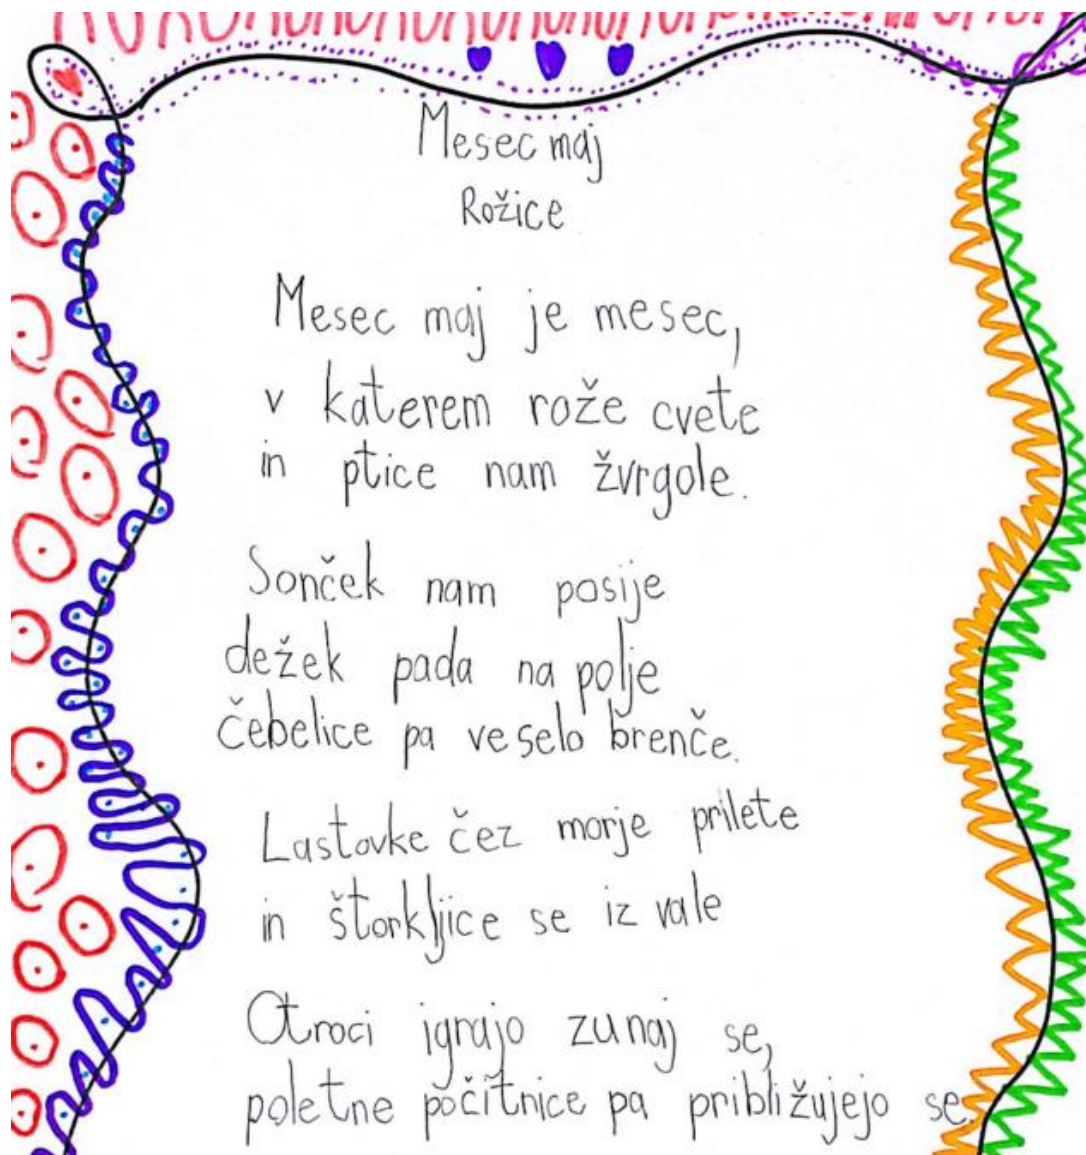 Mesec maj
Rožice
Mesec maj je mesec,
v katerem rože cvete
in ptice nam žvrgole.
Sonček nam posije
dežek pada na polje
čebelice pa veselo brenče.
Lastovke čez morje prilete
in štorkljice se iz vale
Otroci igrajo zunaj se,
poletne počitnice pa približujejo se.